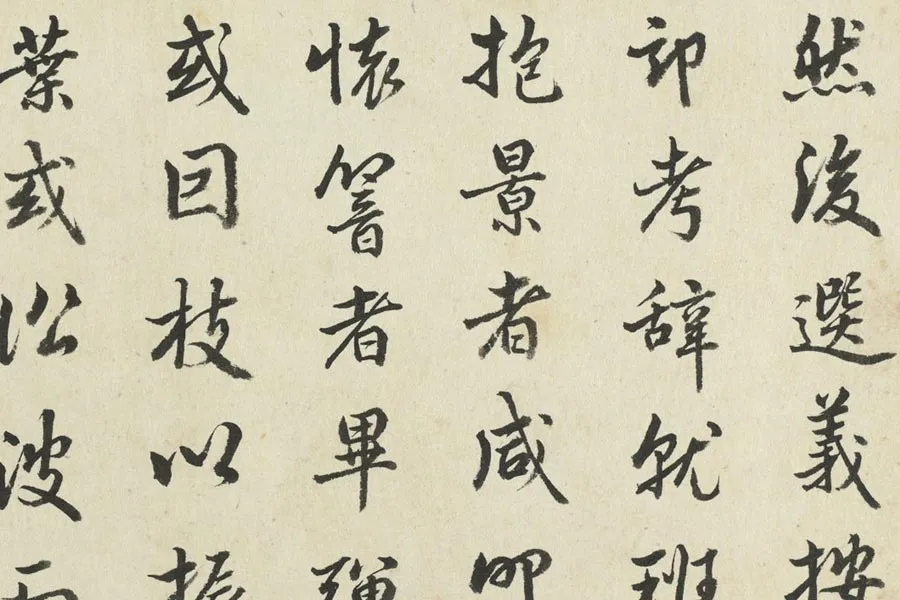 然後選義按
部考辭就班
抱景者咸叩
懷響者畢彈
或因枝以振
葉或沿波而